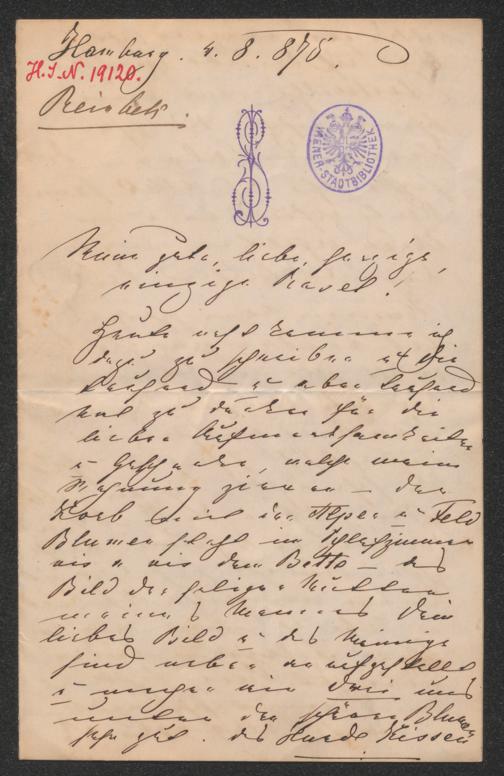 Hamburg. 4. 8. 875.
H. I. N. 19120.
Reinbek.
WIENER-STADTBIBLIOTHEK
Meine gute, liebe,
einzige
Heute erst komme ich
dazu zu schreiben die
tausend u aber tausend
mal zu danken für die
lieben Aufmerksamkeiten
u Geschenke, welche meine
Wohnung zieren – der
Korb mit den Alpen u Feld
Blumen steht im Schlafzimmer
vis a vis dem Bette – das
Bild der seligen Mutter
meines Mannes Dein
liebes Bild u das Meinige
sind neben an aufgestellt
u wir drei uns
unter den schönen Blumen
sehr gut. das Hunde Kissen